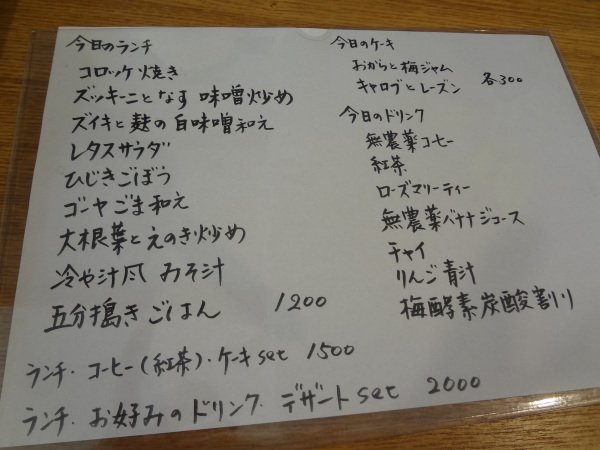 今日のランチ
コロッケ焼き
ズッキーニとなす 味噌炒め
ズイキと麩の白味噌和え
レタスサラダ
ひじきごぼう
ゴーヤごま和え
大根葉とえのき炒め
冷や汁風 みそ汁
五分搗きごはん 1200
今日のケーキ
おからと梅ジャム
キャロブとレーズン 各300
今日のドリンク
無農薬コーヒー
紅茶
ローズマリーティー
無農薬バナナジュース
チャイ
りんご青汁
梅酵素炭酸割り
ランチ・コーヒー(紅茶)・ケーキset 1500
ランチ・お好みのドリンク デザートset 2000